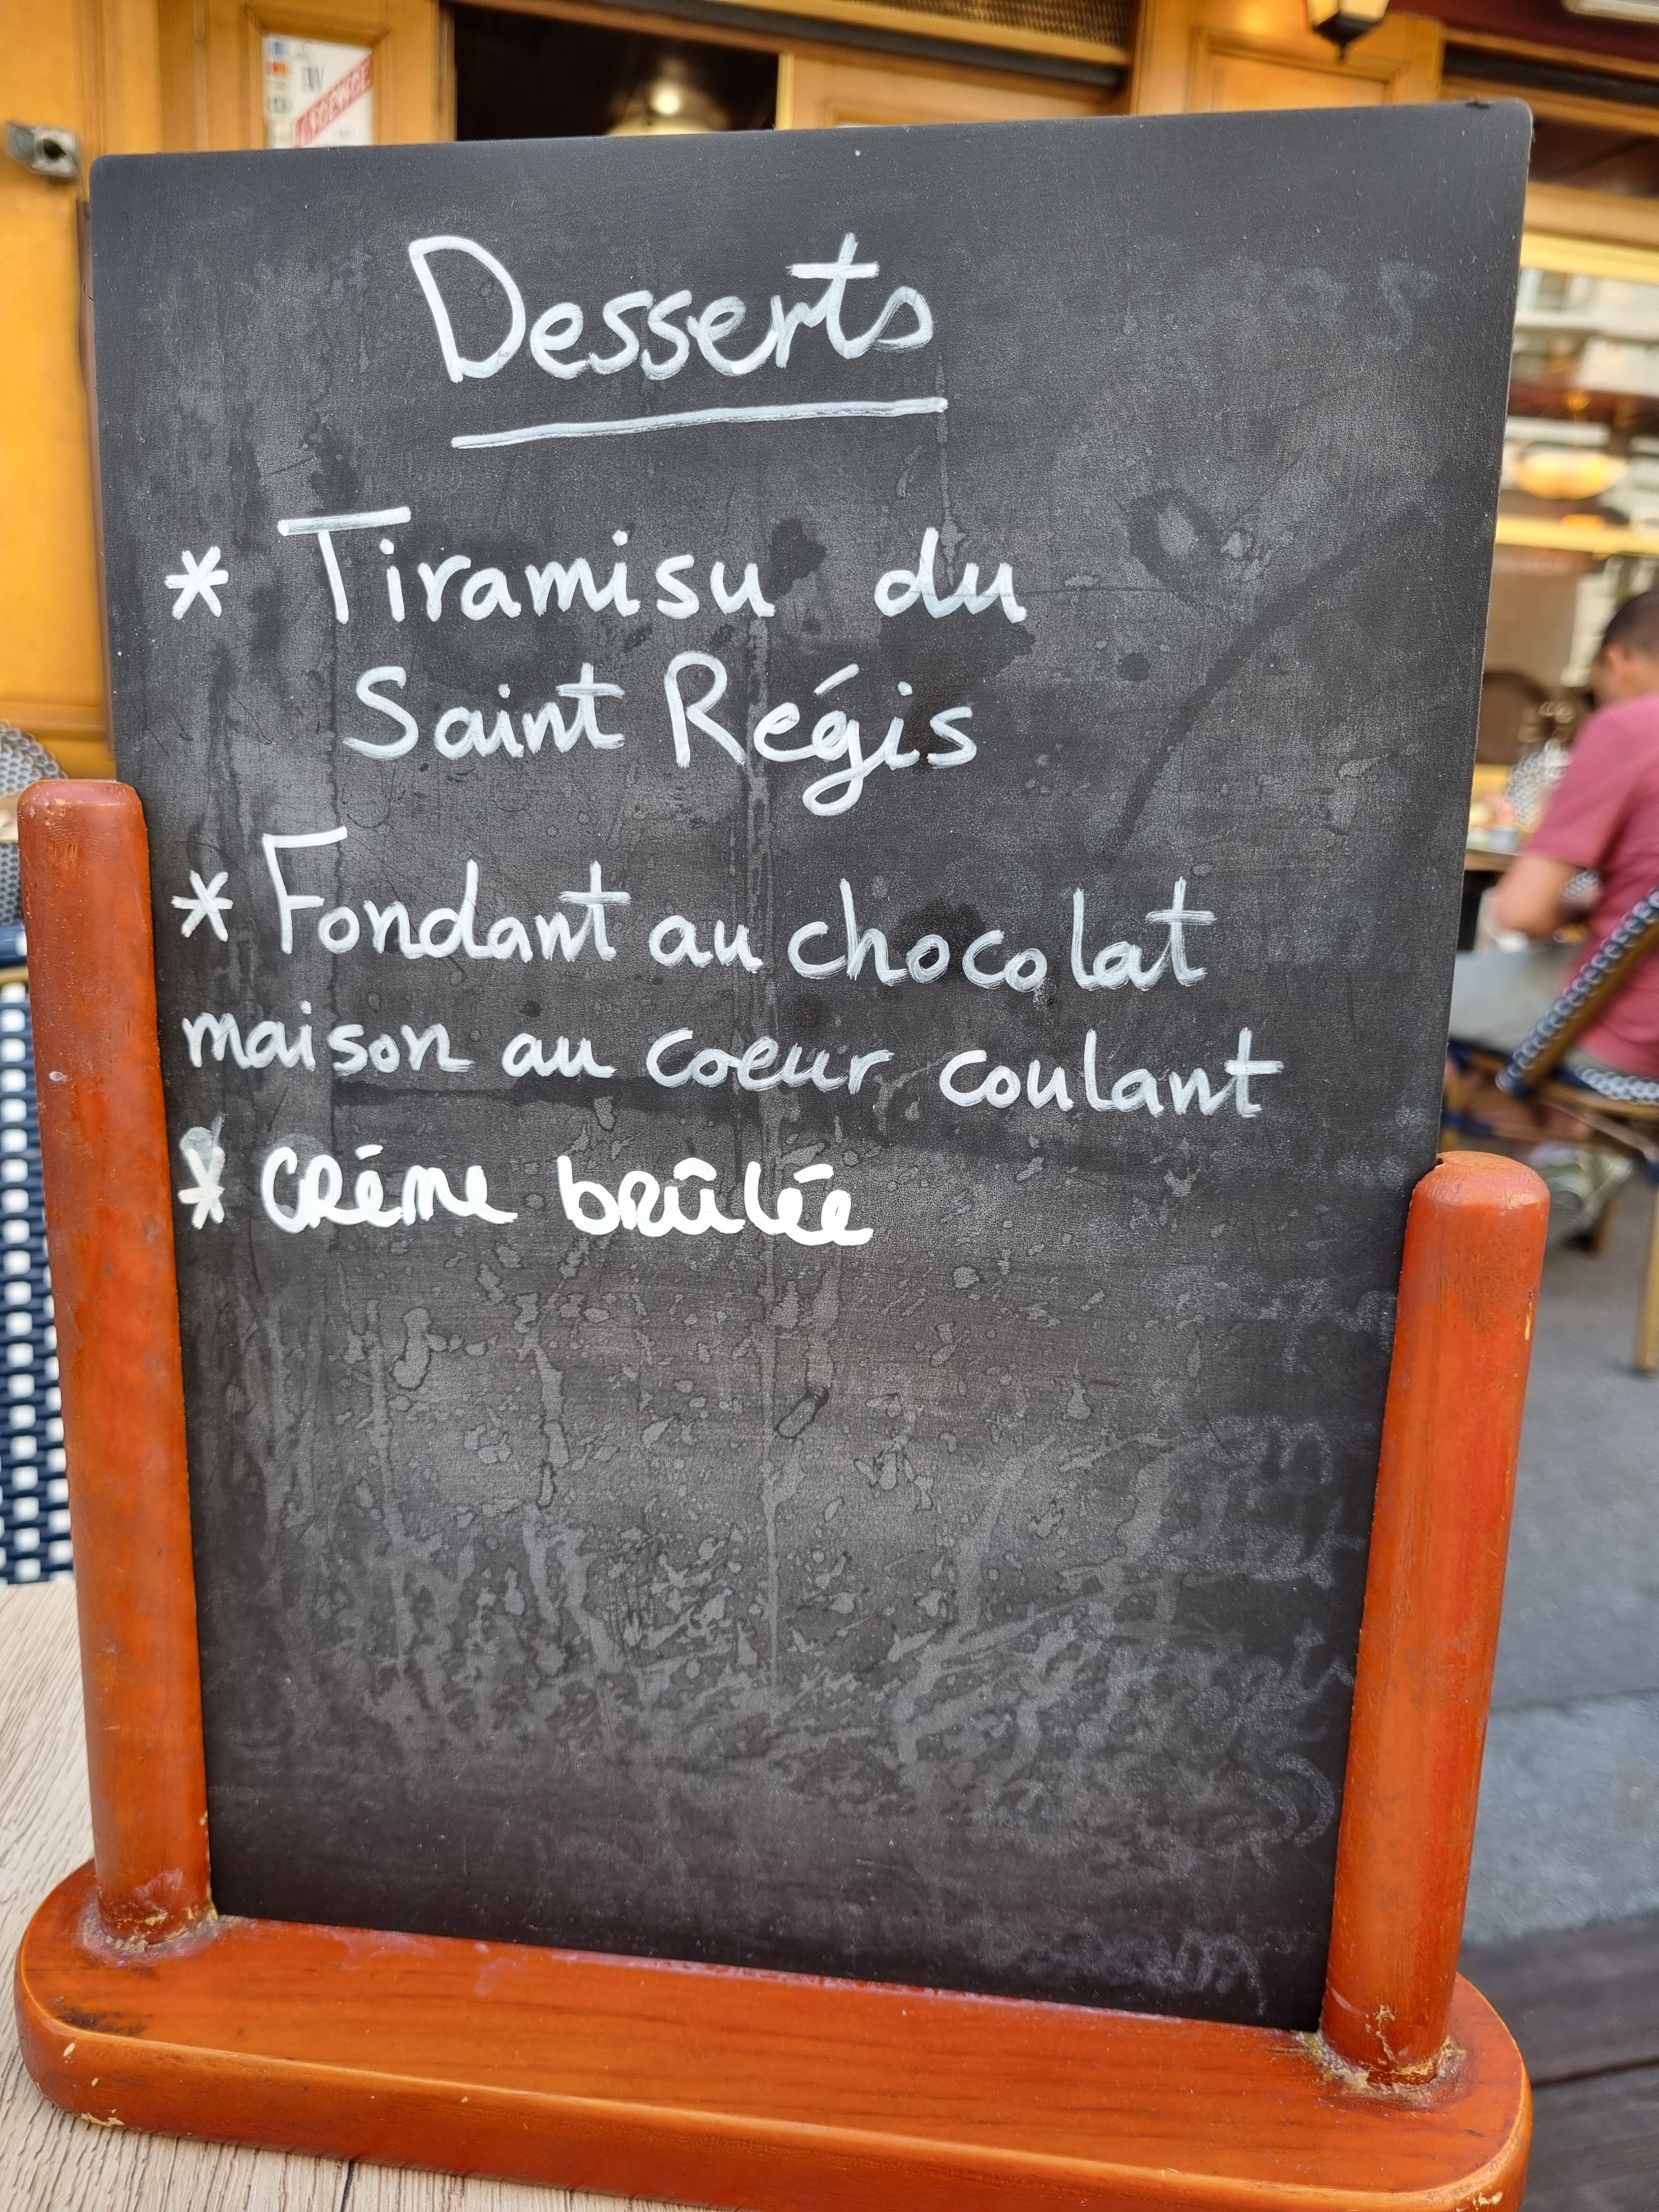 Desserts
* Tiramisu du
Saint Régis
* Fondant au chocolat
maison au coeur coulant
* créme brûlée